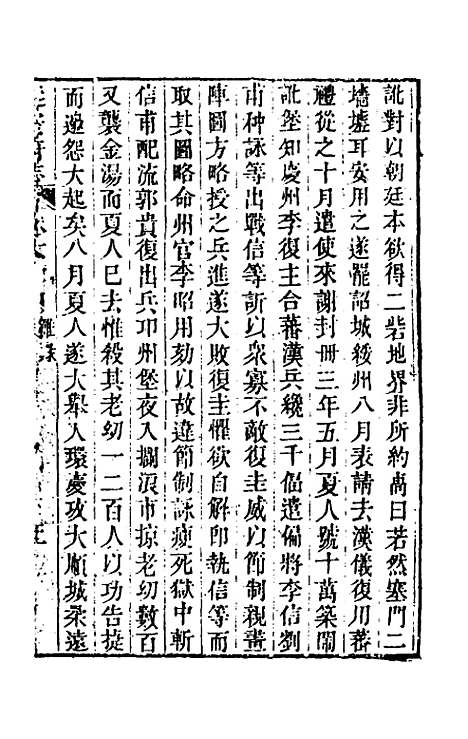 訛對以朝廷本欲得二砦地界非所約卨曰若然塞門二
墻墟耳安用之遂罷詔城綏州八月表請去漢儀復用蕃
禮從之十月遣使來謝封冊三年五月夏人號十萬築閙
訛堡知慶州李復圭合蕃漢兵纔三千偪遣偏將李信劉
甫种詠等出戰信等訴以衆寡不敵復圭威以節制親畫
陣圖方略授之兵進遂大敗復圭懼欲自解卽執信等而
取其圖略命州官李昭用劾以故違節制詠瘐死獄中斬
信甫配流郭貴復出兵卭州堡夜入欄浪市掠老幼數百
又襲金湯而夏人已去惟殺其老幼一二百人以功告捷
而邊怨大起矣八月夏人遂大舉入環慶攻大順城柔遠